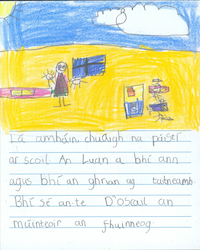 Lá amháin chuaigh na páistí
ar scoil. An Luan a bhí ann
agus bhí an ghrian ag taitneamh
Bhí sé an-te D'oscail an
múinteoir an fhuinneog